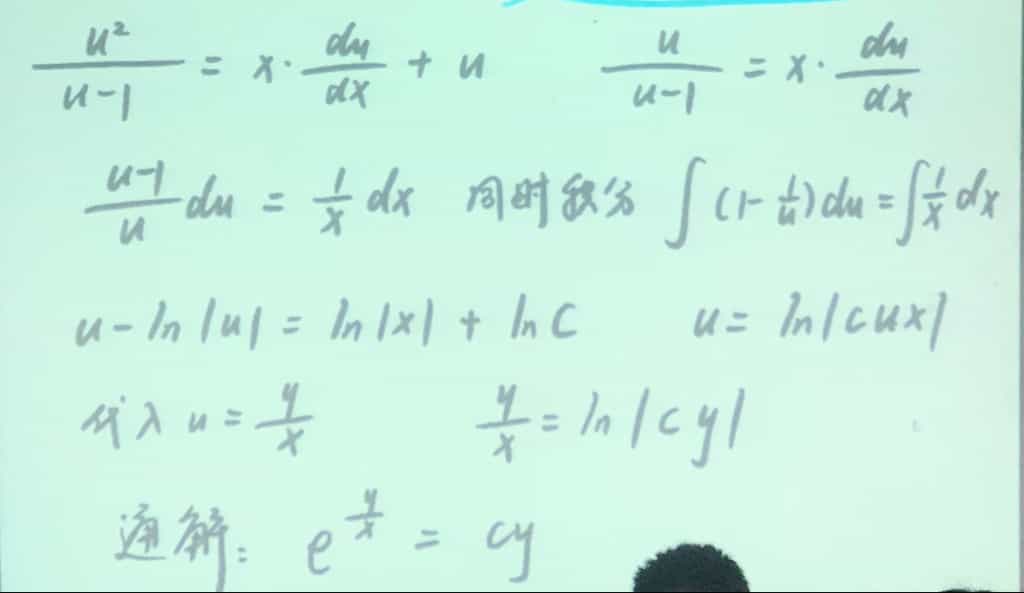 u²/(u-1) = x·du/dx + u    u/(u-1) = x·du/dx
(u-1)/u du = 1/x dx 同时积分 ∫(1-1/u)du = ∫1/x dx
u-ln|u| = ln|x| + lnC    u= ln|cux|
代入 u = y/x    y/x = ln|cy|
通解: e^(y/x) = cy